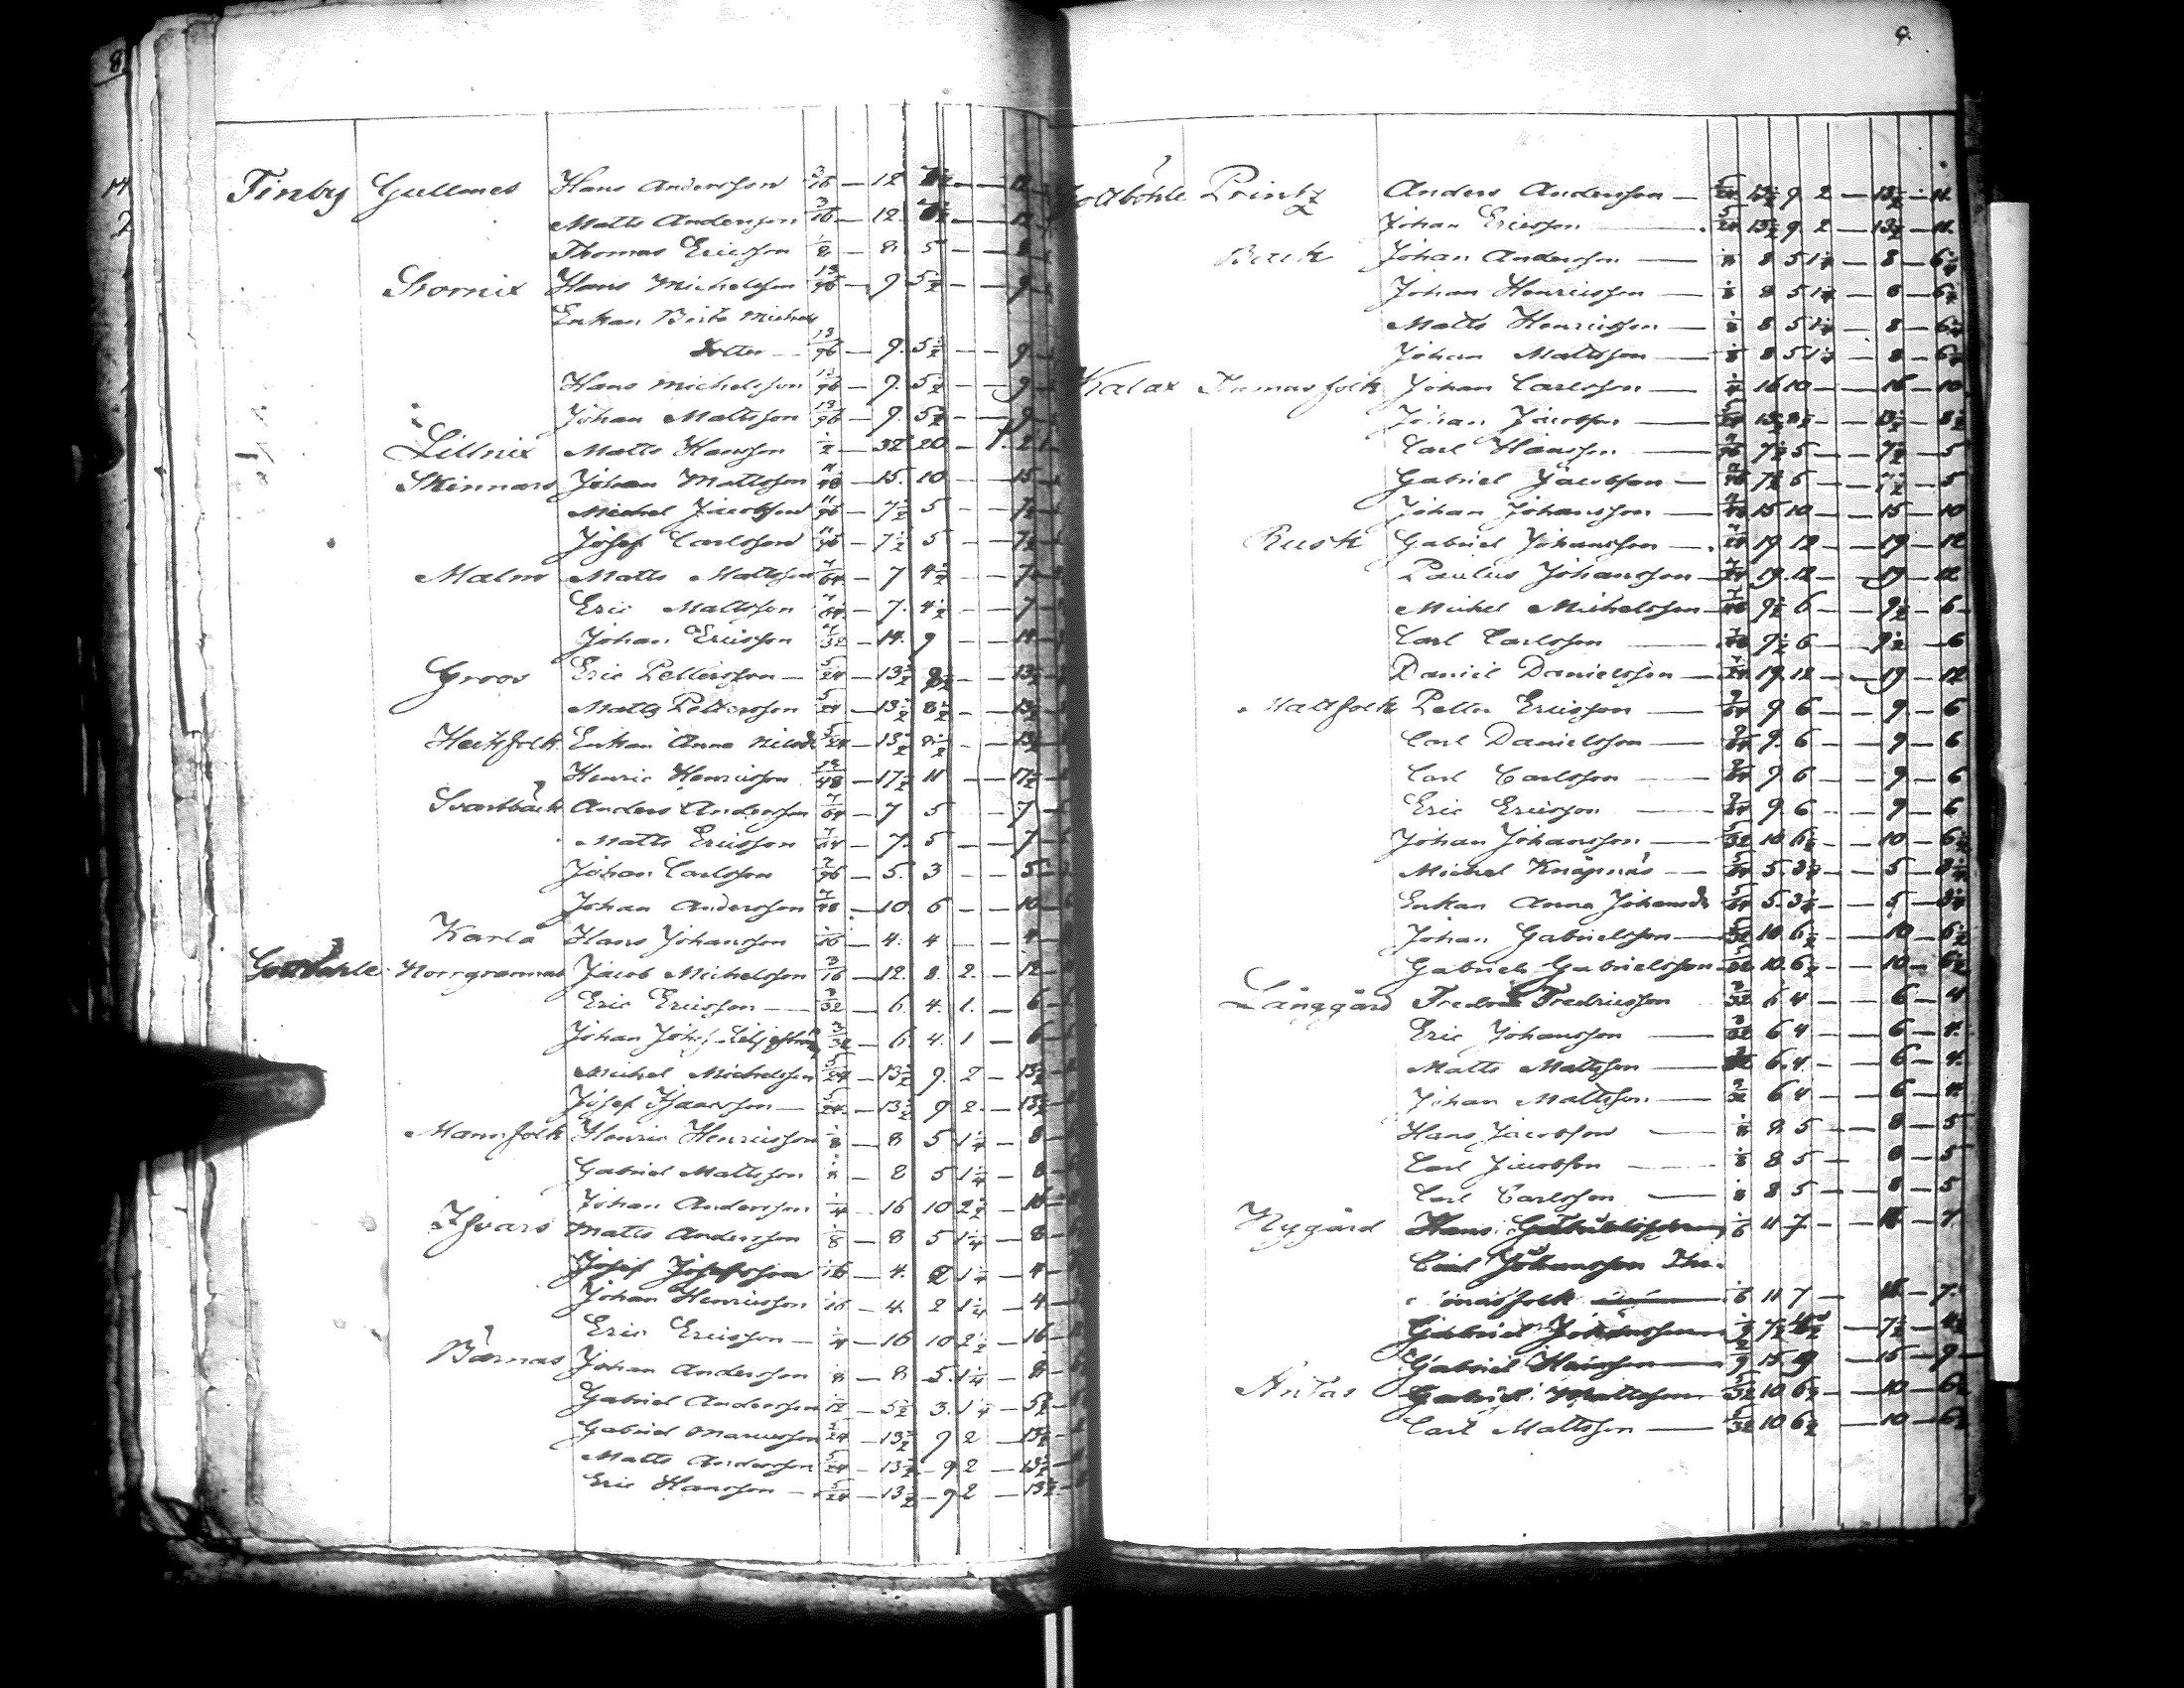 8
Finby Gullmes Hans Andersson 3/16 — 12 7 1/2 — — 12
Matts Andersson 3/16 — 12. 7 1/2 — — 12
Thomas Ericsson 1/8 — 8. 5 — — 8
Stornix Hans Michelsson 13/96 — 9 5 1/2 — — 9
Enkan Brita Michels
dotter — 13/96 — 9. 5 1/2 — — 9
Hans Michelsson 13/96 — 9. 5 1/2 — — 9
Johan Mattsson 13/96 — 9. 5 1/2 — — 9
Lillnix Matts Hansson 1/2 — 32 20 —
Skinnars Johan Mattsson 11/48 — 15. 10 — — 15
Michel Jacobsson 11/96 — 7 1/2 5 — — 7 1/2
Josef Carlsson 11/96 — 7 1/2 5 — — 7 1/2
Malm Matts Mattsson 7/64 — 7 4 1/2 — — 7
Eric Mattsson 7/64 — 7. 4 1/2 — — 7
Johan Ericsson 7/32 — 14. 9 — — 14
Groos Eric Pettersson — 5/24 — 13 1/2 8 1/2 — — 13 1/2
Matts Pettersson 5/24 — 13 1/2 8 1/2 — — 13 1/2
Heikfolk Enkan Anna Nilsdr 5/24 — 13 1/2 8 1/2 — — 13 1/2
Henric Henricsson 13/48 — 17 1/2 11 — — 17 1/2
Svartbäck Anders Andersson 7/64 — 7 5 — — 7
Matts Ericsson 7/64 — 7. 5 — — 7
Johan Carlsson 7/96 — 5. 3 — — 5
Johan Andersson 7/48 — 10. 6 — — 10
Karla Hans Johansson 1/16 — 4. 4 — — 4
Gottböhle Norrgrannas Jacob Michelsson 3/16 — 12. 8. 2. — 12
Eric Ericsson — 3/32 — 6. 4. 1. — 6
Johan Johs 3/32 — 6. 4. 1 — 6
Michel Michelsson 5/24 — 13 1/2 9. 2 — 13 1/2
Josef Isaacsson — 5/24 — 13 1/2 9 2. — 13 1/2
Mannfolk Henric Henricsson 1/8 — 8 5 1 1/4 — 8
Gabriel Mattsson 1/8 — 8 5 1 1/4 — 8
Johan Andersson 1/4 — 16 10 2 1/2 — 16
Ifvars Matts Andersson 1/8 — 8 5 1 1/4 — 8
Josef Josefsson 1/16 — 4. 2 1 1/4 — 4
Johan Henricsson 1/16 — 4. 2 1 1/4 — 4
Eric Ericsson — 1/4 — 16 10 2 1/2 — 16
Bärnas Johan Andersson 1/8 — 8 5. 1 1/4 — 8
Gabriel Andersson 1/12 — 5 1/2 3. 1 1/4 — 5 1/2
Gabriel Marcusson 5/24 — 13 1/2 9 2 — 13 1/2
Matts Andersson 5/24 — 13 1/2 — 9 2 — 13 1/2
Eric Hansson — 5/24 — 13 1/2 — 9 2 — 13 1/2
9.
Gottböhle Printz Anders Andersson — 5/24 13 1/2 9 2 — 13 1/2 — 11.
Johan Ericsson — 5/24 13 1/2 9 2 — 13 1/2 — 11.
Back Johan Andersson — 1/8 8 5 1 1/4 — 8 — 6 1/4
Johan Henricsson — 1/8 8 5 1 1/4 — 8 — 6 1/4
Matts Henricsson — 1/8 8 5 1 1/4 — 8 — 6 1/4
Johan Mattsson — 1/8 8 5 1 1/4 — 8 — 6 1/4
Kalax Johan Carlsson — 1/4 16 10 — — 16 — 10
Johan Jacobsson — 5/24 13 1/2 8 1/2 — — 13 1/2 — 8 1/2
Carl Hansson — 11/96 7 1/2 5 — — 7 1/2 — 5
Gabriel Jacobsson — 11/96 7 1/2 5 — — 7 1/2 — 5
Johan Johansson — 11/48 15 10 — — 15 — 10
Rusk Gabriel Johansson — 7/24 19 12 — — 19 — 12
Paulus Johansson — 7/24 19. 12 — — 19 — 12
Michel Michelsson — 7/48 9 1/2 6 — — 9 1/2 — 6
Carl Carlsson — 7/48 9 1/2 6 — — 9 1/2 — 6
Daniel Danielsson — 7/24 19. 12 — — 19 — 12
Mattfolk Petter Ericsson — 9/64 9 6 — — 9. — 6
Carl Danielsson — 9/64 9. 6 — — 9 — 6
Carl Carlsson — 9/64 9 6 — — 9 — 6
Eric Ericsson — 9/64 9. 6 — — 9 — 6
Johan Johansson — 5/32 10 6 1/2 — — 10 — 6 1/2
Michel Knäpnäs — 5/64 5. 3 1/4 — — 5 — 3 1/4
Enkan Anna Johansdr 5/64 5. 3 1/4 — — 5 — 3 1/4
Johan Gabrielsson — 5/32 10 6 1/2 — — 10 — 6 1/2
Gabriel Gabrielsson 5/32 10. 6 1/2 — — 10 — 6 1/2
Långgård Fredric Fredricsson 3/32 6 4 — — 6 — 4
Eric Johansson — 3/32 6 4 — — 6 — 4.
Matts Mattsson — 3/32 6. 4 — — 6 — 4.
Johan Mattsson — 3/32 6 4 — — 6 — 4.
Hans Jacobsson — 1/8 8 5 — — 8 — 5
Carl Jacobsson — 1/8 8 5 — — 8 — 5
Carl Carlsson — 1/8 8 5 — — 8 — 5
Nygård Hans 1/6 11 7 — — 11 — 7
Carl Johansson
1/6 11 7 — 11 — 7.
Gabriel Johansson 7 1/2 — 7 1/2 — 4 1/2
Gabriel Hansson — 15 9 — 15 — 9 —
Antas Gabriel Mattsson 5/32 10 6 1/2 — — 10 — 6 1/2
Carl Mattsson — 5/32 10 6 1/2 — 10 — 6 1/2